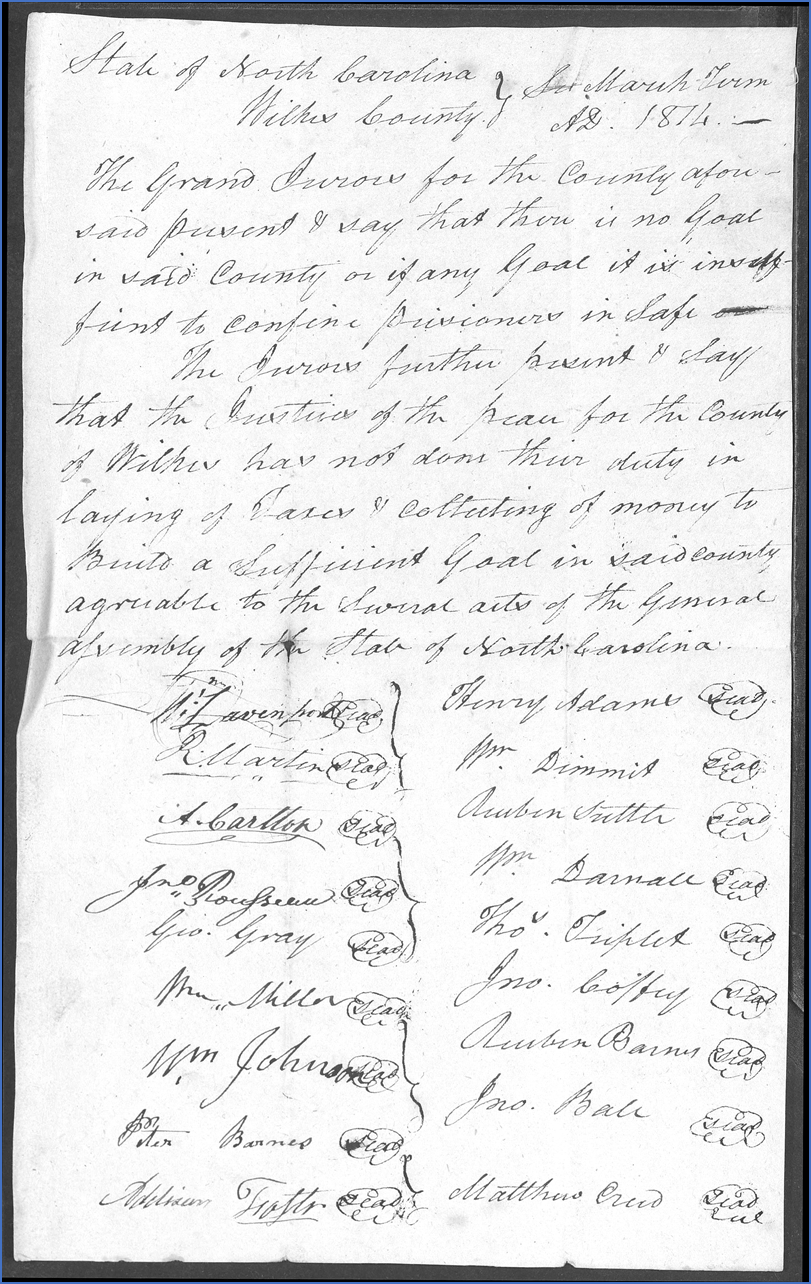 State of North Carolina } March Term
Wilkes County. } AD. 1814. —
The Grand Jurors for the County afore-
said present & say that there is no Goal
in said County or if any Goal it is insuff-
fient to confine prisioners in Safe
The Jurors further present & Say
that the Justices of the peace for the County
of Wilkes has not done their duty in
laying of Taxes & collecting of money to
Build a Sufficient Goal in said county
agreeable to the Several acts of the General
assembly of the State of North Carolina.
Wm. Davenport Seal Henry Adams Seal
R. Martin Seal Wm. Dimmit Seal
A. Carlton Seal Reuben Suttle Seal
Jno. Rousseau Seal Wm. Darnall Seal
Geo. Gray Seal Thos. Triplet Seal
Wm. Miller Seal Jno. Coffey Seal
Wm Johnson Seal Reuben Barnes Seal
Barnes Seal Jno. Ball Seal
Seal Matthew Creed Seal